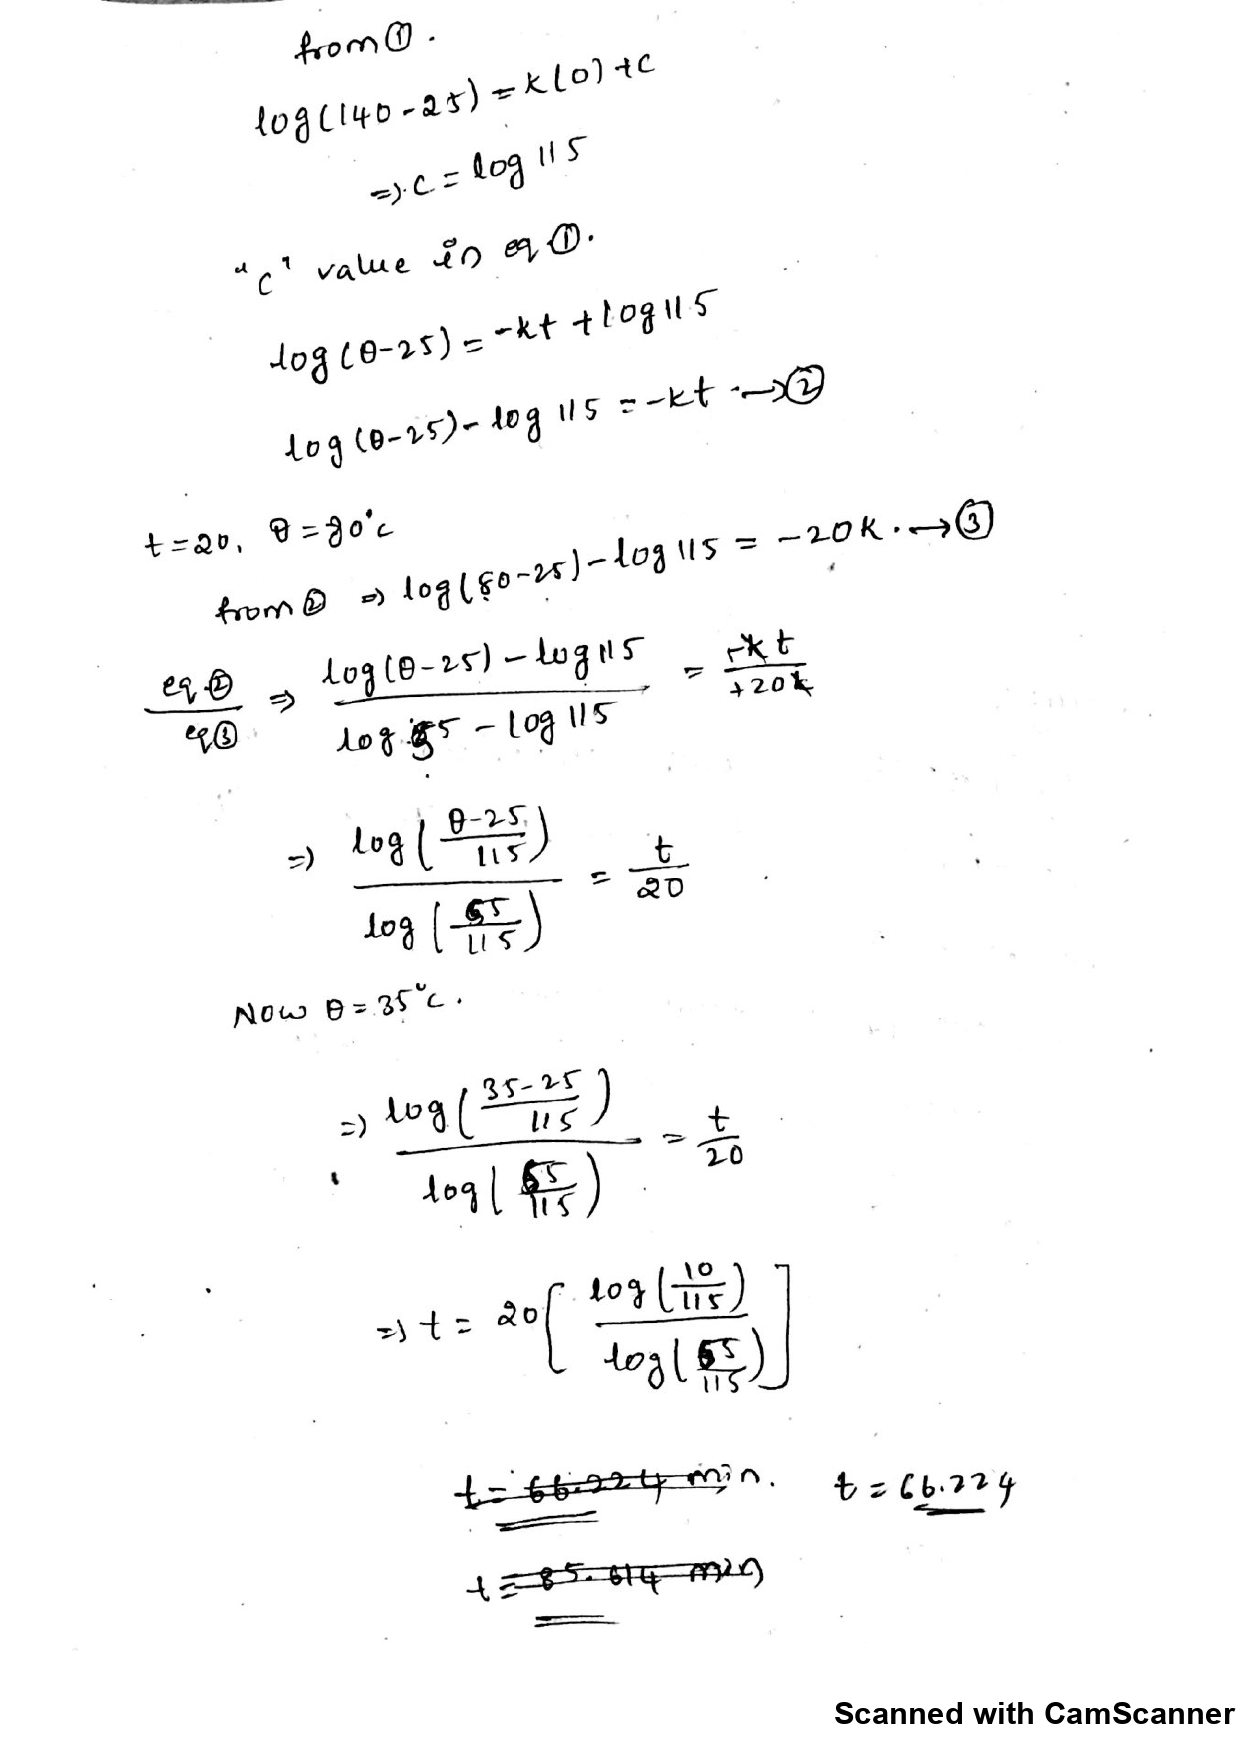 from ①.
log(140-25) = k(0) + c
⇒ c = log 115
"c" value in eq ①.
log(θ-25) = -kt + log 115
log(θ-25) - log 115 = -kt → ②
t = 20, θ = 80°c
from ② ⇒ log(80-25) - log 115 = -20k. → ③
eq ②/eq ③ ⇒ (log(θ-25) - log 115)/(log 55 - log 115) = -kt/+20k
⇒ log((θ-25)/115)/log(55/115) = t/20
Now θ = 35°c.
⇒ log((35-25)/115)/log(55/115) = t/20
⇒ t = 20[log(10/115)/log(55/115)]
t = 66.224 min. t = 66.224
t = 85.614 min
Scanned with CamScanner